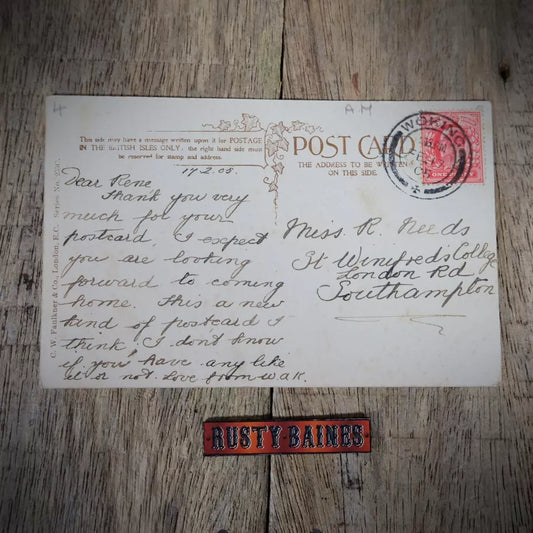 4
A M
This side may have a message written upon it for POSTAGE
IN THE BRITISH ISLES ONLY: the right hand side must
be reserved for stamp and address.
POST CARD
THE ADDRESS TO BE WRITTEN
ON THIS SIDE.
WOKING
C. W. Faulkner & Co., London, E.C. Series No.
17.2.05.
Dear Rene
Thank you very
much for your
postcard. I expect
you are looking
forward to coming
home. This a new
kind of postcard I
think. I don't know
if you have any like
it or not. Love from W.A.K.
Miss. R. Needs
St Winifreds College
London Rd
Southampton
RUSTY·BAINES